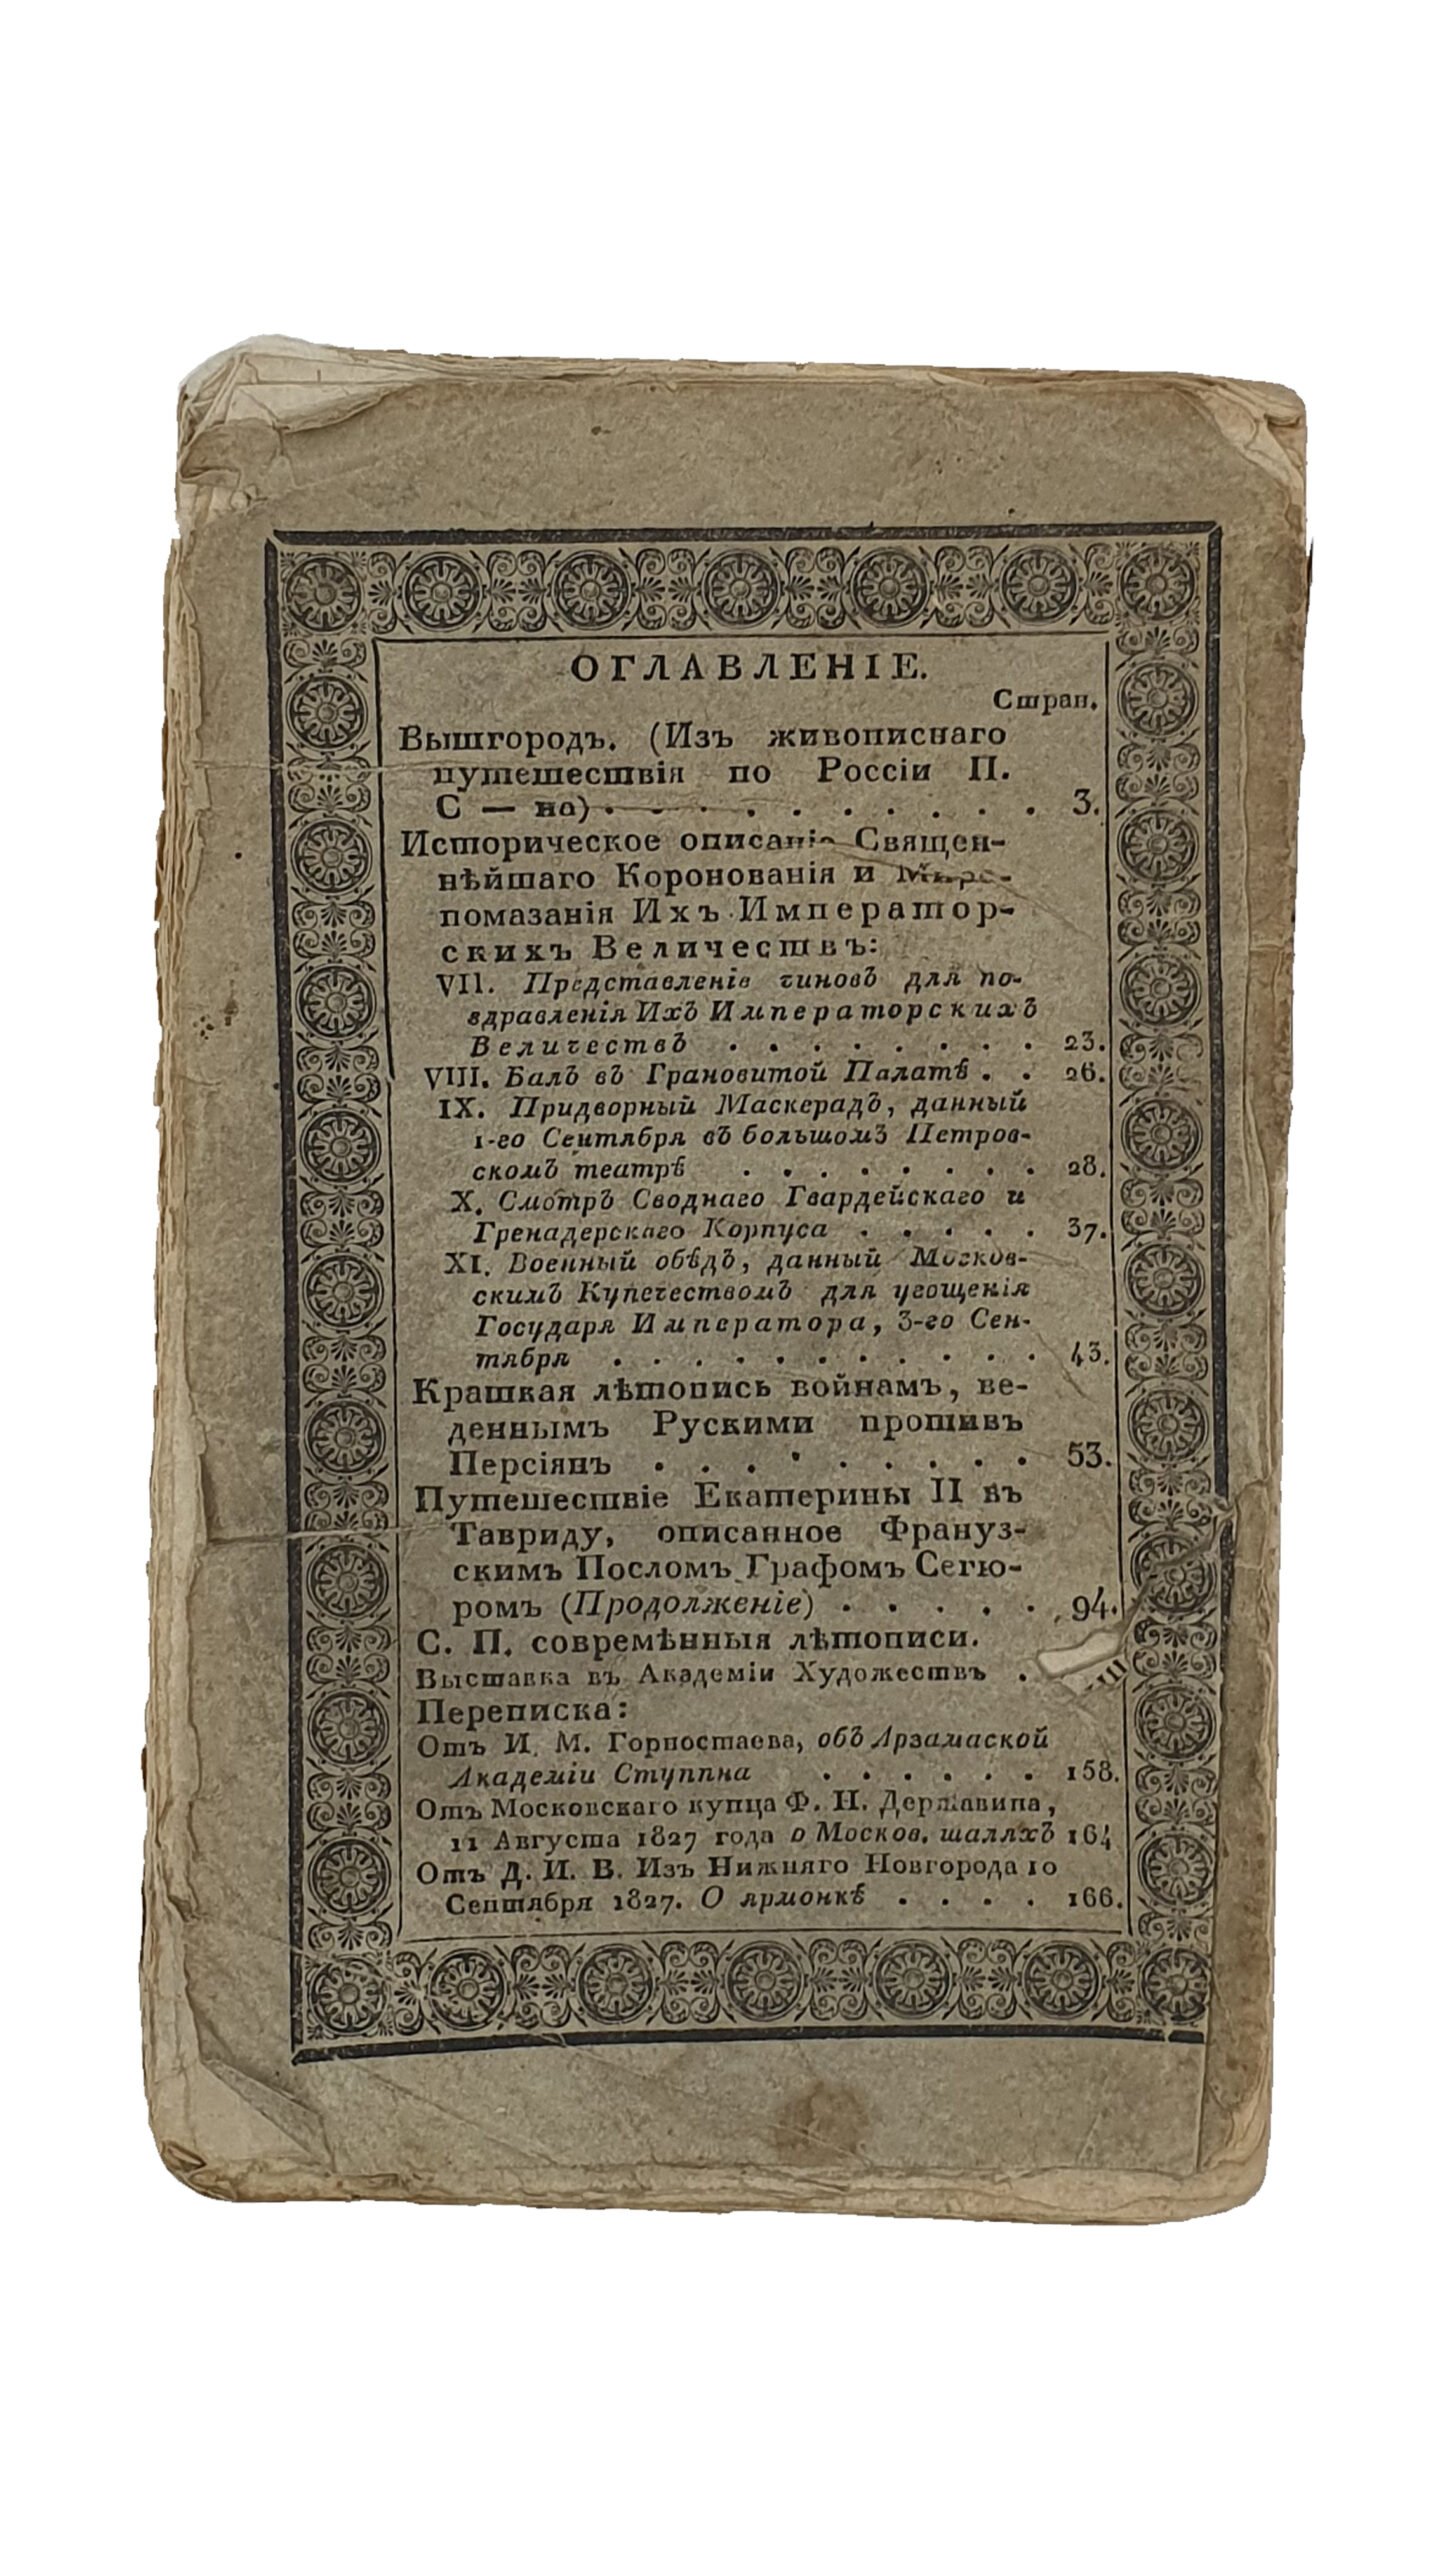 ОГЛАВЛЕНІЕ.
Стран.
Вышгородъ. (Изъ живописнаго
путешествія по Россіи П.
С — на) . . . . . . . . . . 3.
Историческое описаніе Священ-
нѣйшаго Коронованія и Миро-
помазанія Ихъ Император-
скихъ Величествъ:
VII. Представленіе чиновъ для по-
здравленія Ихъ Императорскихъ
Величествъ . . . . . . . . 23.
VIII. Балъ въ Грановитой Палатѣ . . 26.
IX. Придворный Маскерадъ, данный
1-го Сентября въ большомъ Петров-
скомъ театрѣ . . . . . . . . 28.
X. Смотръ Своднаго Гвардейскаго и
Гренадерскаго Корпуса . . . . . 37.
XI. Военный обѣдъ, данный Москов-
скимъ Купечествомъ для угощенія
Государя Императора, 3-го Сен-
тября . . . . . . . . . . . 43.
Краткая лѣтопись войнамъ, ве-
деннымъ Рускими противъ
Персіянъ . . . . . . . . . 53.
Путешествіе Екатерины II въ
Тавриду, описанное Француз-
скимъ Посломъ Графомъ Сегю-
ромъ (Продолженіе) . . . . . 94.
С. П. современныя лѣтописи.
Выставка въ Академіи Художествъ .
Переписка:
Отъ И. М. Горностаева, объ Арзамаской
Академіи Ступина . . . . . . 158.
Отъ Московскаго купца Ф. Н. Державина,
11 Августа 1827 года о Москов. шаляхъ 164
Отъ Д. И. В. Изъ Нижняго Новгорода 10
Сентября 1827. О ярмонкѣ . . . . 166.